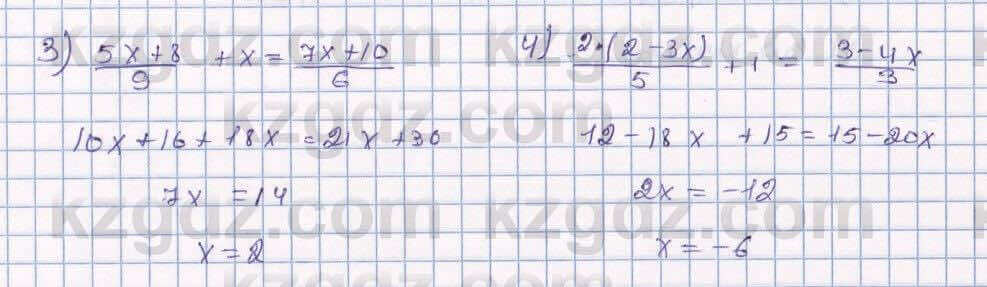 3) (5x+8)/9 + x = (7x+10)/6
10x+16+18x=21x+30
7x = 14
x = 2
4) 2·(2-3x)/5 + 1 = (3-4x)/3
12-18x +15=15-20x
2x = -12
x = -6
kzgdz.com kzgdz.com
kzgdz.com
kzgdz.com kzgdz.com